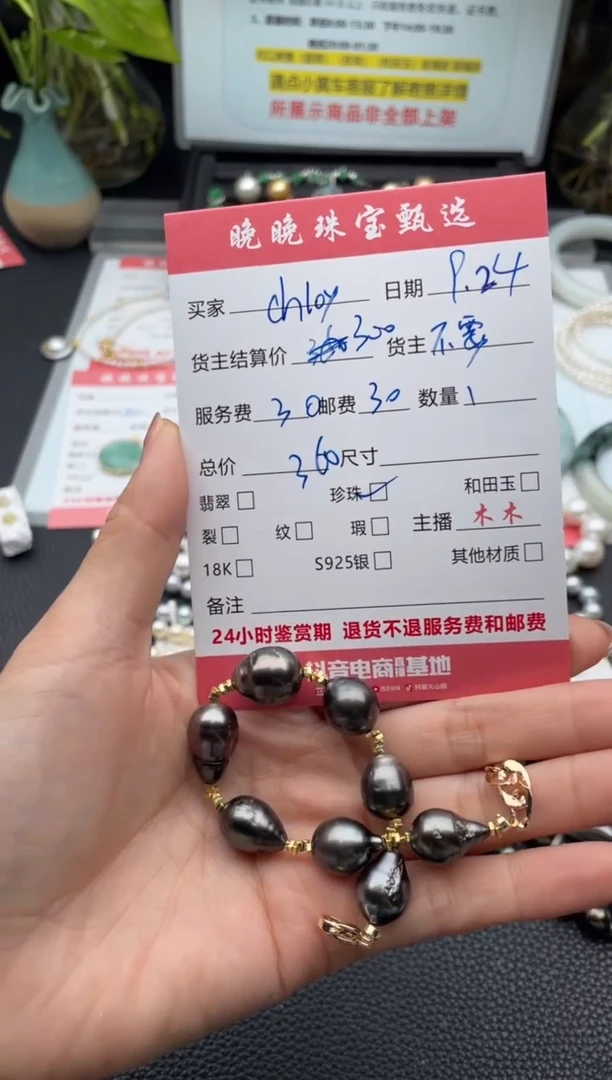 请点小黄车客服了解寄售详情
所展示商品非全部上架
晚晚珠宝甄选
买家 chloy 日期 9.24
货主结算价 300 货主 不震
服务费 30 邮费 30 数量 1
总价 360 尺寸
翡翠 珍珠 和田玉
裂 纹 瑕 主播 木木
18K S925银 其他材质
备注
24小时鉴赏期 退货不退服务费和邮费
抖音电商直播基地